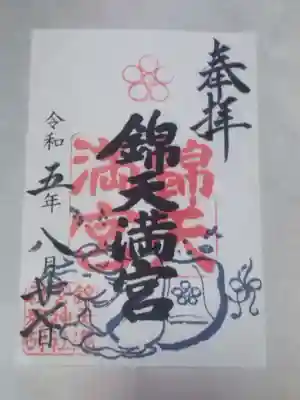 奉拝
錦天
満宮
錦天満宮
令和五年八月廿八日